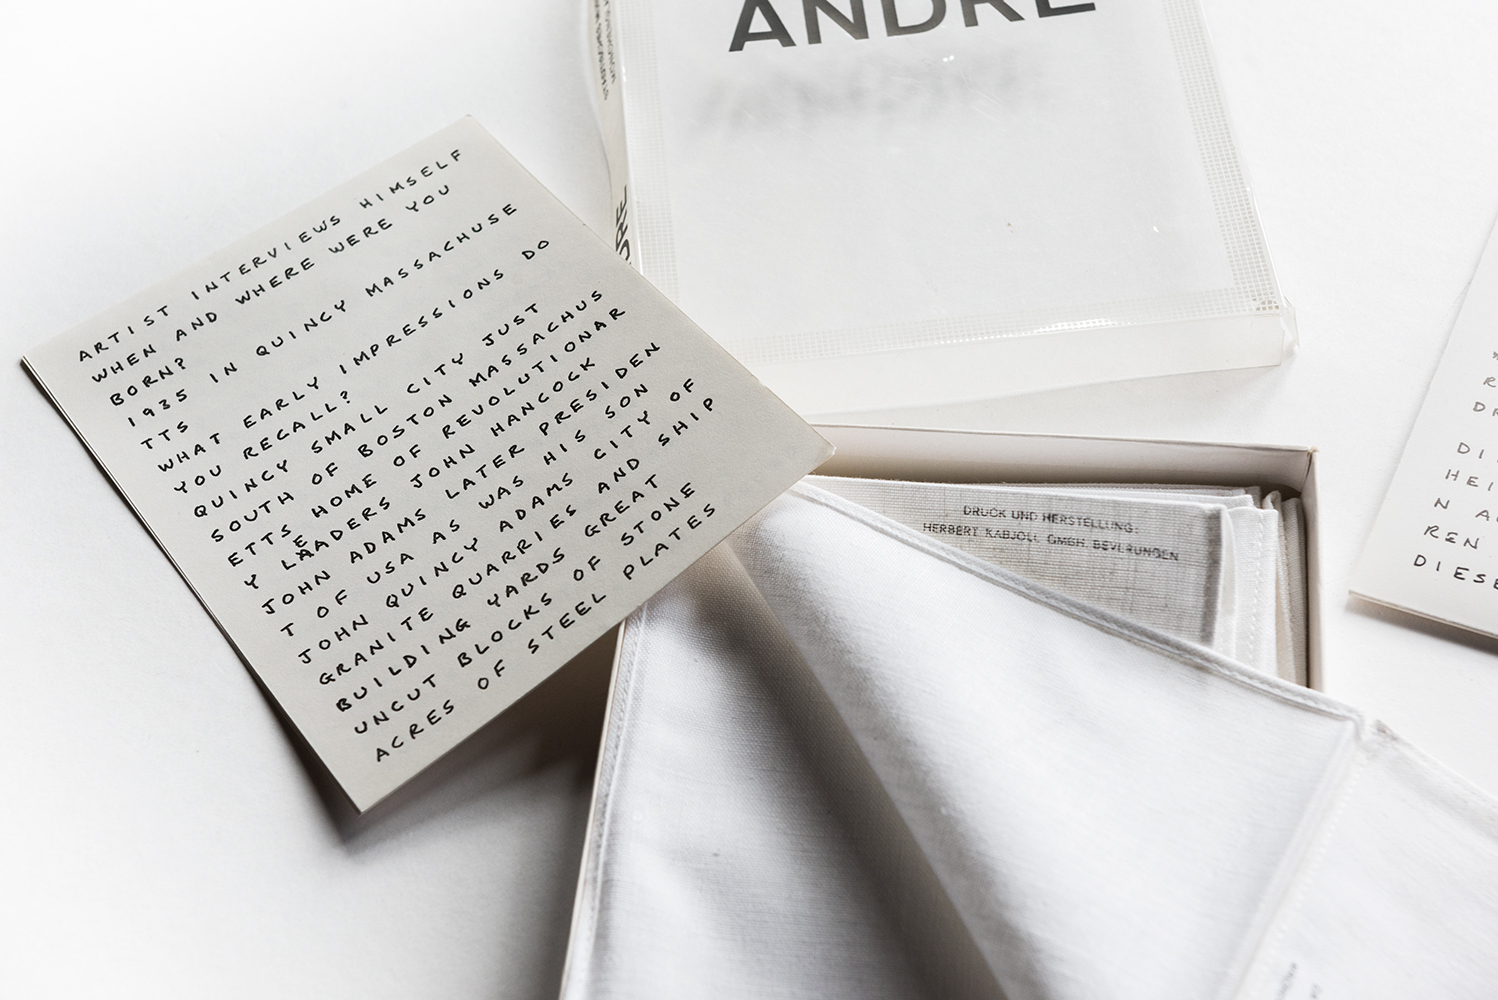 ANDRE
ARTIST INTERVIEWS HIMSELF
WHEN AND WHERE WERE YOU
BORN?
1935 IN QUINCY MASSACHUSE
TTS
WHAT EARLY IMPRESSIONS DO
YOU RECALL?
QUINCY SMALL CITY JUST
SOUTH OF BOSTON MASSACHUS
ETTS HOME OF REVOLUTIONAR
Y LEADERS JOHN HANCOCK
JOHN ADAMS LATER PRESIDEN
T OF USA AS WAS HIS SON
JOHN QUINCY ADAMS CITY OF
GRANITE QUARRIES AND SHIP
BUILDING YARDS GREAT
UNCUT BLOCKS OF STONE
ACRES OF STEEL PLATES
DRUCK UND HERSTELLUNG:
HERBERT KABJOLL GMBH, BEVERUNGEN
R
DR
DI
HEI
N A
REN
DIESE